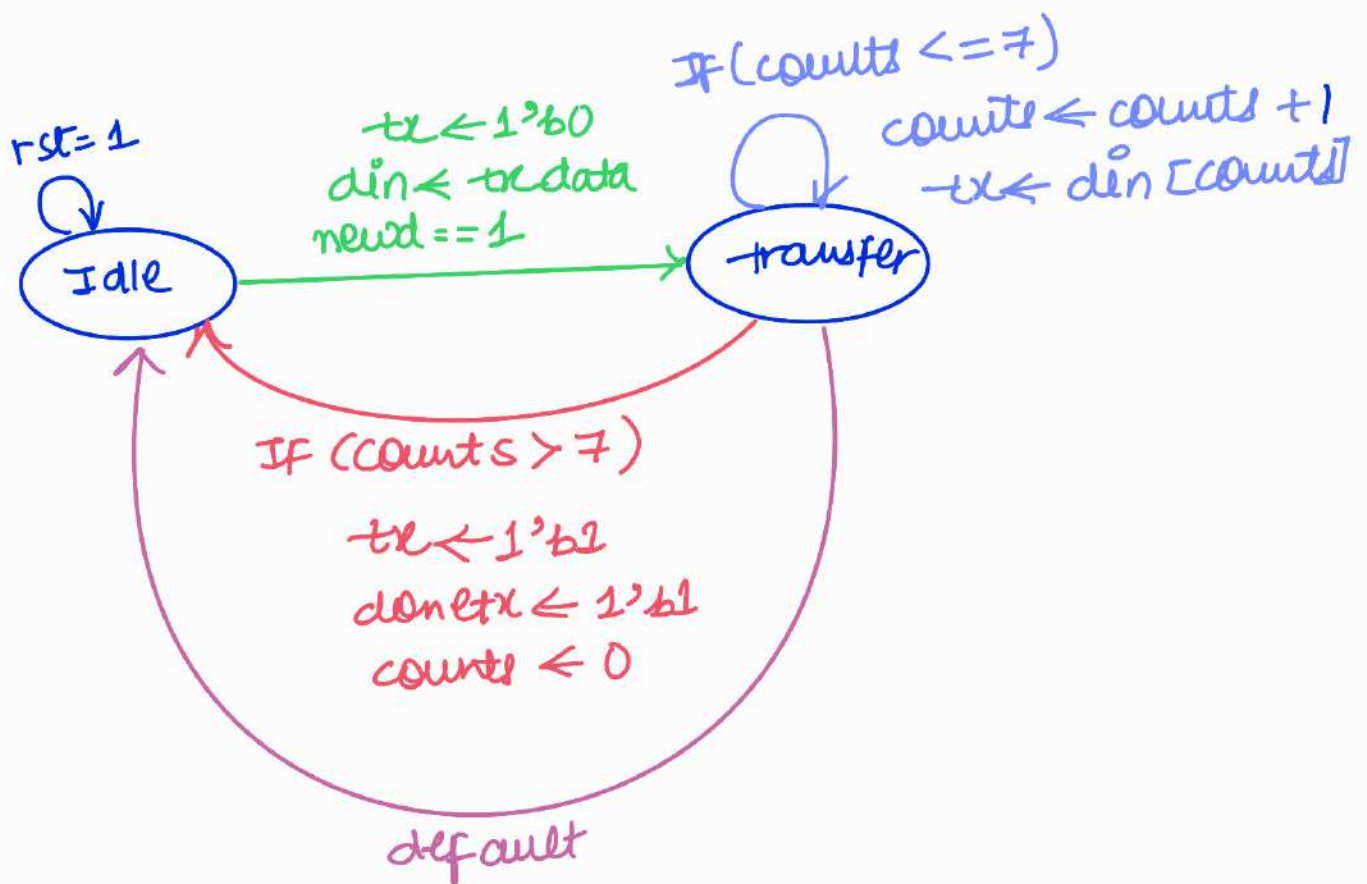 rst=1
Idle
tx <- 1'b0
din <- txdata
newd==1
transfer
If(counts <=7)
counts <- counts +1
tx <- din [counts]
IF (counts > 7)
tx <- 1'b1
donetx <- 1'b1
counts <- 0
default